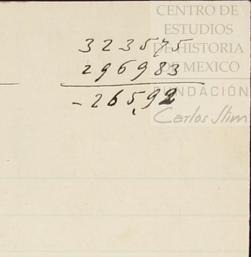 CENTRO DE
ESTUDIOS
DE HISTORIA
DE MEXICO
FUNDACIÓN
Carlos Slim
323575
296983
-265,92